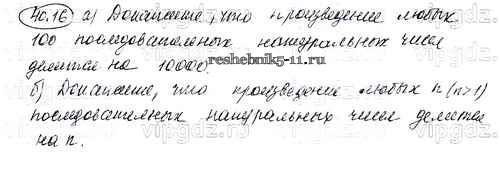 40.16 а) Докажите, что произведение любых
100 последовательных натуральных чисел
делится на 10000.
reshebnik5-11.ru
б) Докажите, что произведение любых n (n>1)
последовательных натуральных чисел делится
на n.